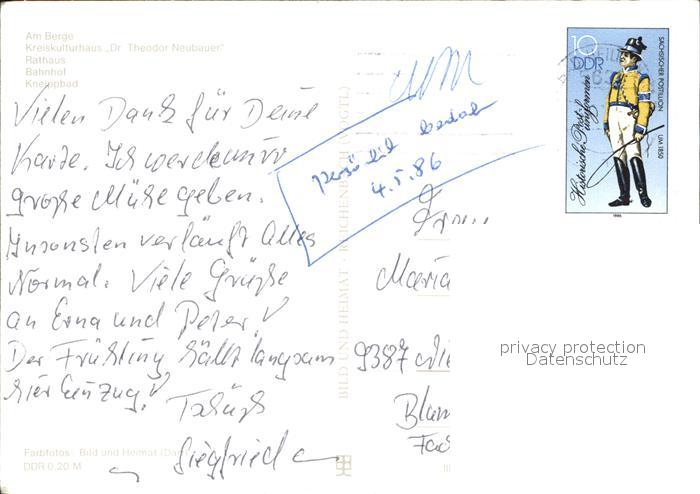 Am Berge
Kreiskulturhaus „Dr. Theodor Neubauer"
Rathaus
Bahnhof
Kneippbad
Vielen Dank für Deine
Karte. Ich werde mir
große Mühe geben.
Ansonsten verläuft Alles
Normal. Viele Grüße
an Erna und Peter!
Der Frühling hält langsam
hier Einzug!
Tschüß
Siegfried
Farbfotos: Bild und Heimat
DDR 0,20 M
BILD UND HEIMAT REICHENBACH (VOGTL)
persönlich
4.5.86
Frau
Maria
9387
Blum
10
DDR
Historische Postuniformen
SÄCHSISCHER POSTILLION UM 1850
1986
privacy protection
Datenschutz